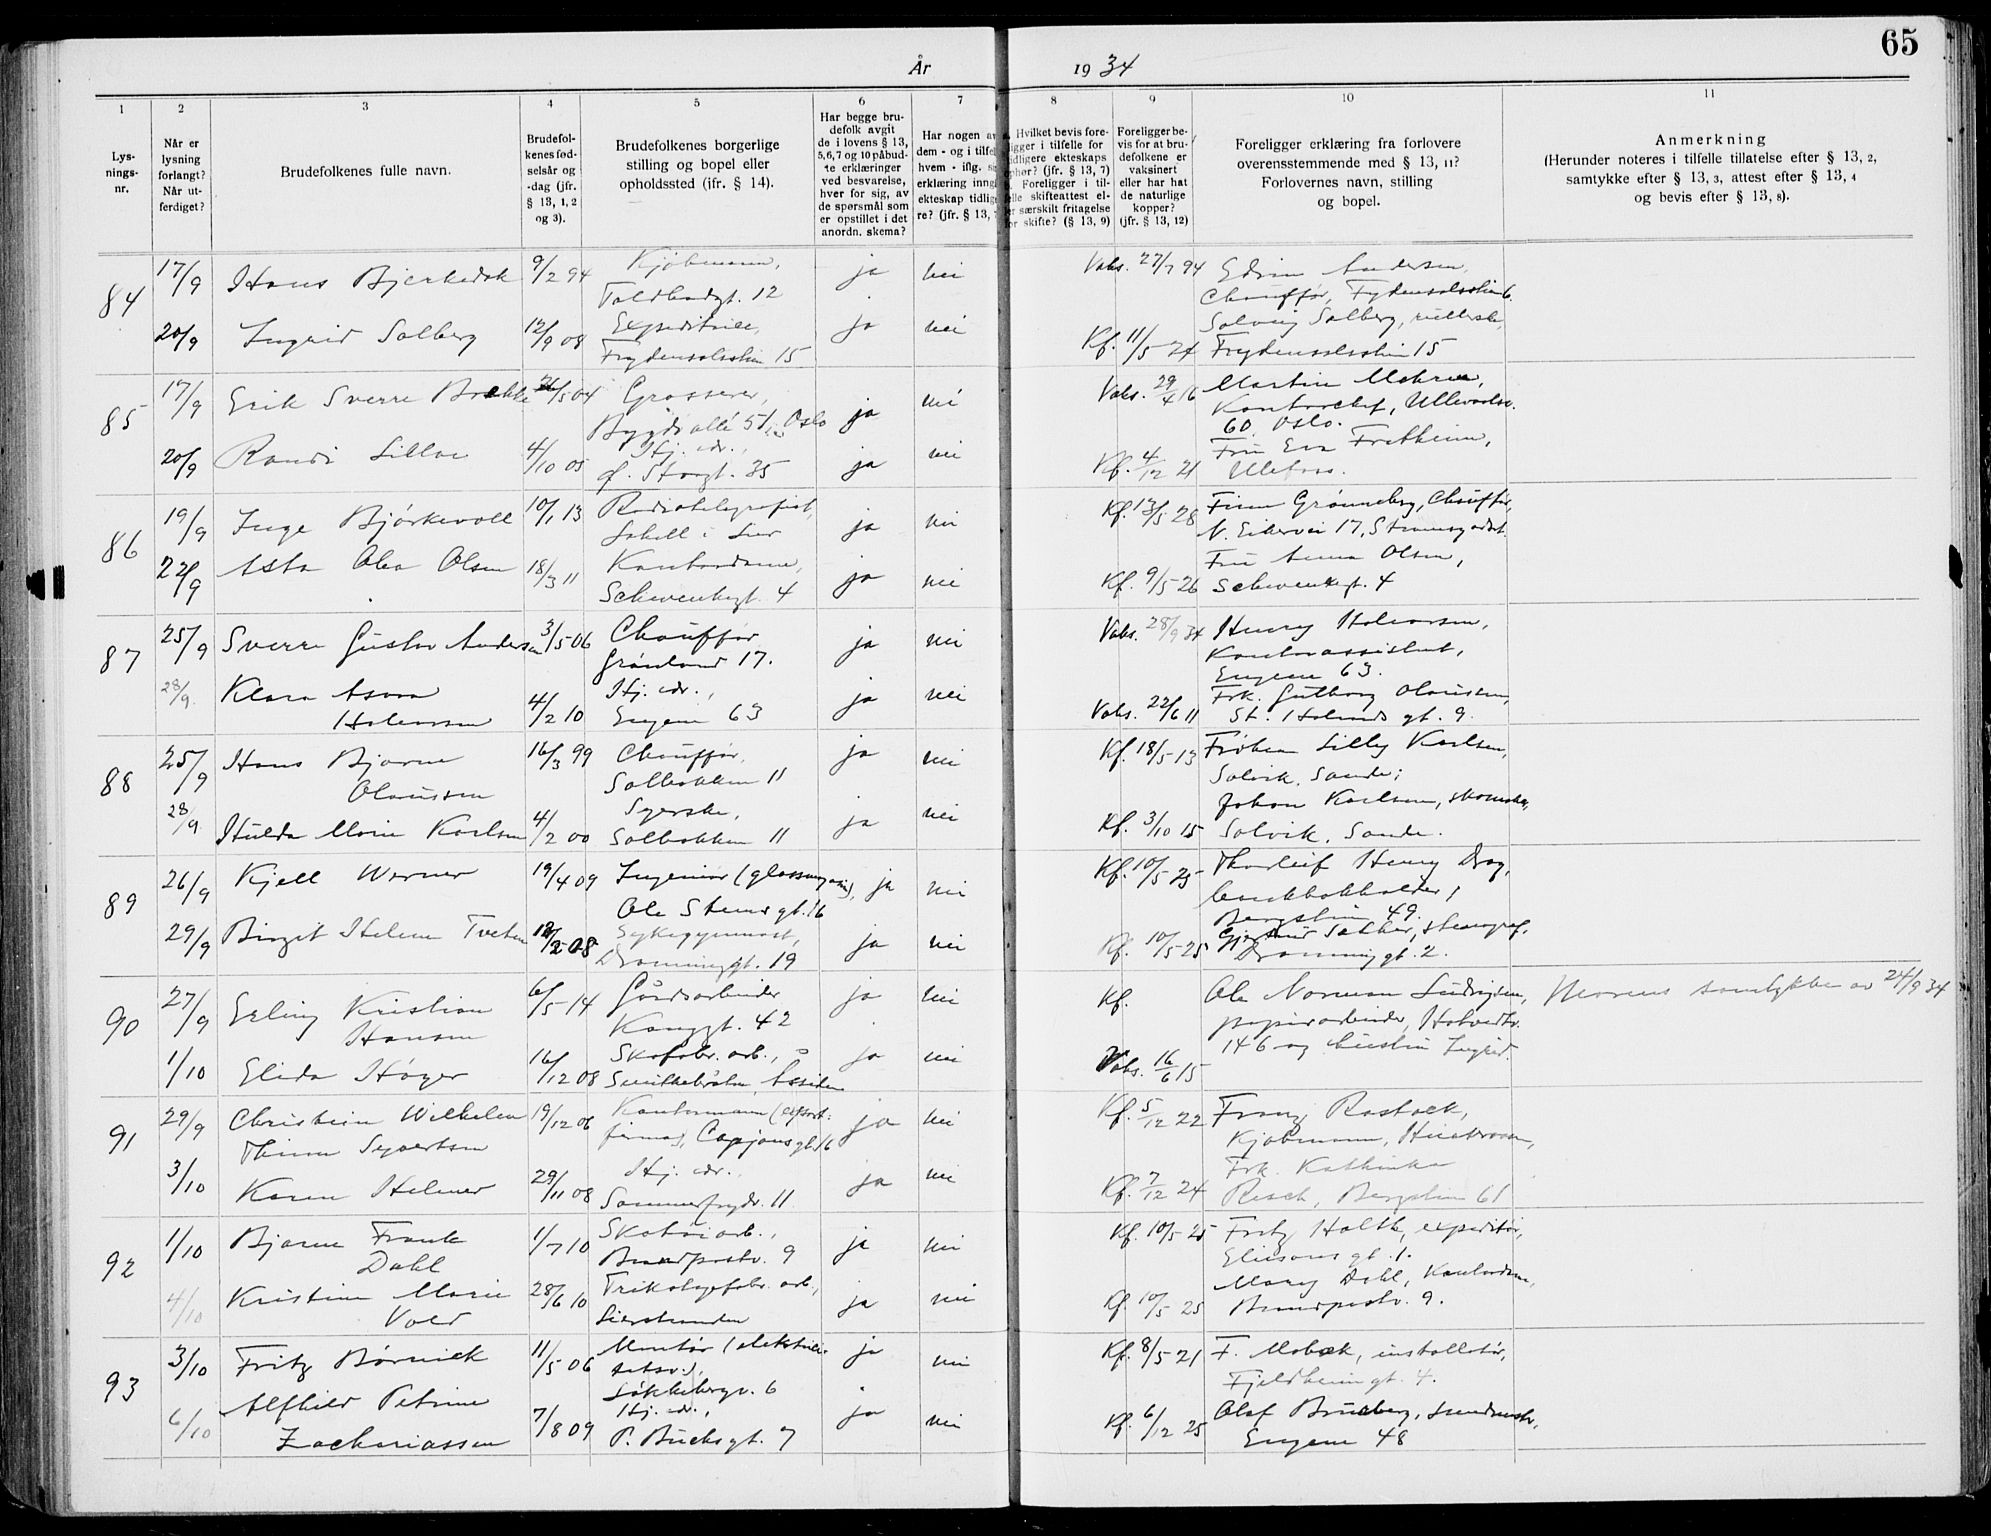 65
År 1934
1 2 3 4 5 6 7 8 9 10 11
Lys-
nings-
nr.
Når er
lysning
forlangt?
Når ut-
ferdiget?
Brudefolkenes fulle navn.
Brudefol-
kenes fød-
selsår og
-dag (jfr.
§ 13, 1, 2
og 3).
Brudefolkenes borgerlige
stilling og bopel eller
opholdssted (jfr. § 14).
Har begge bru-
defolk avgit
de i lovens § 13,
5,6,7 og 10 påbud-
te erklæringer
ved besvarelse,
hver for sig, av
de spørsmål som
er opstillet i det
anordn. skema?
Har nogen av
dem - og i tilfel
hvem - iflg.
erklæring inng
ekteskap tidlig
re? (jfr. § 13,
Hvilket bevis fore-
ligger i tilfelle for
tidligere ekteskaps
ophør? (jfr. § 13, 7)
Foreligger i til-
felle skifteattest el-
er særskilt fritagelse
for skifte? (§ 13, 9)
Foreligger be-
vis for at bru-
defolkene er
vaksinert
eller har hat
de naturlige
kopper?
(jfr. § 13, 12)
Foreligger erklæring fra forlovere
overensstemmende med § 13, 11?
Forlovernes navn, stilling
og bopel.
Anmerkning
(Herunder noteres i tilfelle tillatelse efter § 13, 2,
samtykke efter § 13, 3, attest efter § 13, 4
og bevis efter § 13, 8).
84 17/9 Hans Bjerkedok 9/2 94 Kjøbmann, ja nei Vaks. 27/7 94 Edvin Andersen,
Toldbodgt. 12 Chauffør,
20/9 Ingrid Solberg 12/9 08 Expeditrise, ja nei Solveig Solberg,
Frydenvolsstien 15 Kf. 11/5 24 Frydenvolsstien 15
85 17/9 Erik Sverre Brekke 26/5 04 Grosserer, ja nei Vaks. 29/4 16 Martin
Bygdø allé 51, Oslo Kontorchef, Ullevoldsv.
60, Oslo.
20/9 Randi Lilloe 4/10 05 Hj. vær., ja nei Kf. 4/12 21 Fru Eva Fretheim,
ø. Storgt. 35 Ulefoss.
86 19/9 Inge Bjørkevoll 10/1 13 Radiotelegrafist, ja nei Kf. 13/5 28 Finn Grønneberg, Chauffør,
i Lier N. Eikervei 17,
22/9 Asta Olea Olsen 18/3 11 Kontordame, ja nei Kf. 9/5 26 Fru Anna Olsen,
Schwenckegt. 4 Schwenckegt. 4
87 25/9 Sverre Gustav Andersen 3/5 06 Chauffør, ja nei Vaks. 28/9 34 Henry Halvorsen,
Grønland 17. Kontorassistent,
Engene 63.
28/9 Klara Asora 4/2 10 Hj. vær., ja nei Vaks. 22/6 11 Frk. Gutborg Olaussen,
Halvorsen Engene 63 St. Halvards gt. 9.
88 25/9 Hans Bjarne 16/3 99 Chauffør, ja nei Kf. 18/5 13 Frøken Lilly Karlsen,
Olaussen Solbakken 11 Solvik, Sande;
28/9 Hulda Marie Karlsen 4/2 00 Syerske, ja nei Kf. 3/10 15 Johan Karlsen,
Solbakken 11 Solvik, Sande.
89 26/9 Kjell Werner 19/4 09 Ingeniør ja nei Kf. 10/5 25 Thorleif Henry Drag,
Ole Steens gt. 16 bankbokholder,
Bergstien 49.
29/9 Birgit Helene Tveten 12/2 08 Sykegymnast, ja nei Kf. 10/5 25 stenograf,
Dronninggt. 19 Dronninggt. 2.
90 27/9 Erling Kristian 6/5 14 Gårdsarbeider ja nei Kf. Ole Norman Ludvigsen, Morens samtykke av 24/9 34
Hansen Konggt. 42 papirarbeider,
1/10 Elida Høyer 16/12 08 Skofabr. arb., ja nei Vaks. 16/6 15 146 og hustru Ingrid.
Åssiden
91 29/9 Christian Wilhelm 19/12 06 Kontormann (export- ja nei Kf. 5/12 22 Franz Rostock,
Thinn Syvertsen firma), Cappjens gt. 16 Kjøbmann,
3/10 Karen Helmer 29/11 08 Hj. vær., ja nei Kf. 7/12 24 Frk. Kathinka
Sommerfrydv. 11 Resch, Bergstien 61
92 1/10 Bjarne Frank 1/7 10 Skotøiarb., ja nei Kf. 10/5 25 Fritz Holth, expeditør,
Dahl Brandpostv. 9 Eliesons gt. 1.
4/10 Kristine Marie 28/6 10 Trikotagefabr. arb., ja nei Kf. 10/5 25 Mary Dahl, Kontordame,
Vold Lierstranden Brandpostv. 9.
93 3/10 Fritz Børnick 11/5 06 Montør (elektrici- ja nei Kf. 8/5 21 F. Mobæk, installatør,
tetsv.), Fjeldheimgt. 4.
Løkkebergv. 6
6/10 Alfhild Petrine 7/8 09 Hj. vær., ja nei Kf. 6/12 25 Olaf Bruseberg,
Zachariassen P. Bucks gt. 7 Engene 48